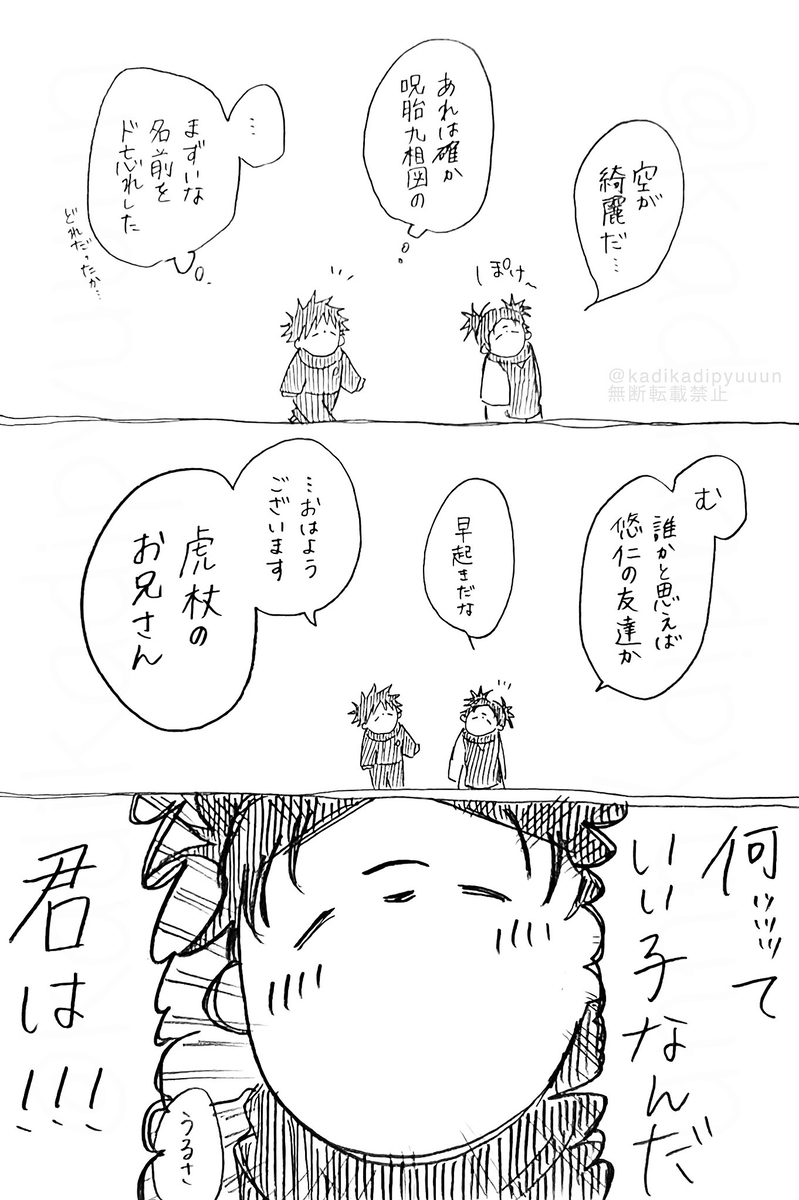 空が
綺麗だ…
ぽけ〜
あれは確か
呪胎九相図の
…
まずいな
名前を
ド忘れした
どれだったか…
@kadikadipyuuun
無断転載禁止
む
誰かと思えば
悠仁の友達か
早起きだな
…おはよう
ございます
虎杖の
お兄さん
何ッッッて
いい子なんだ
君は!!!
うるさ